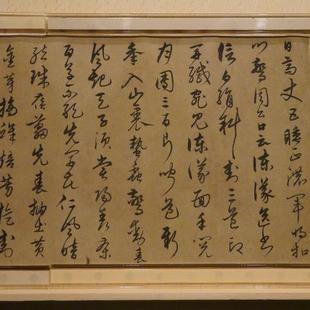 日高丈五睡正濃軍將扣
門驚周公口云諫議送書
信白絹斜封三道印
開緘宛見諫議面手閱
月團三百片聞道新
年入山裏蟄蟲驚動春
風起天子須嘗陽羨茶
百草不敢先開花仁風暗
結珠蓓蕾先春抽出黃
金芽摘鮮焙芳旋封